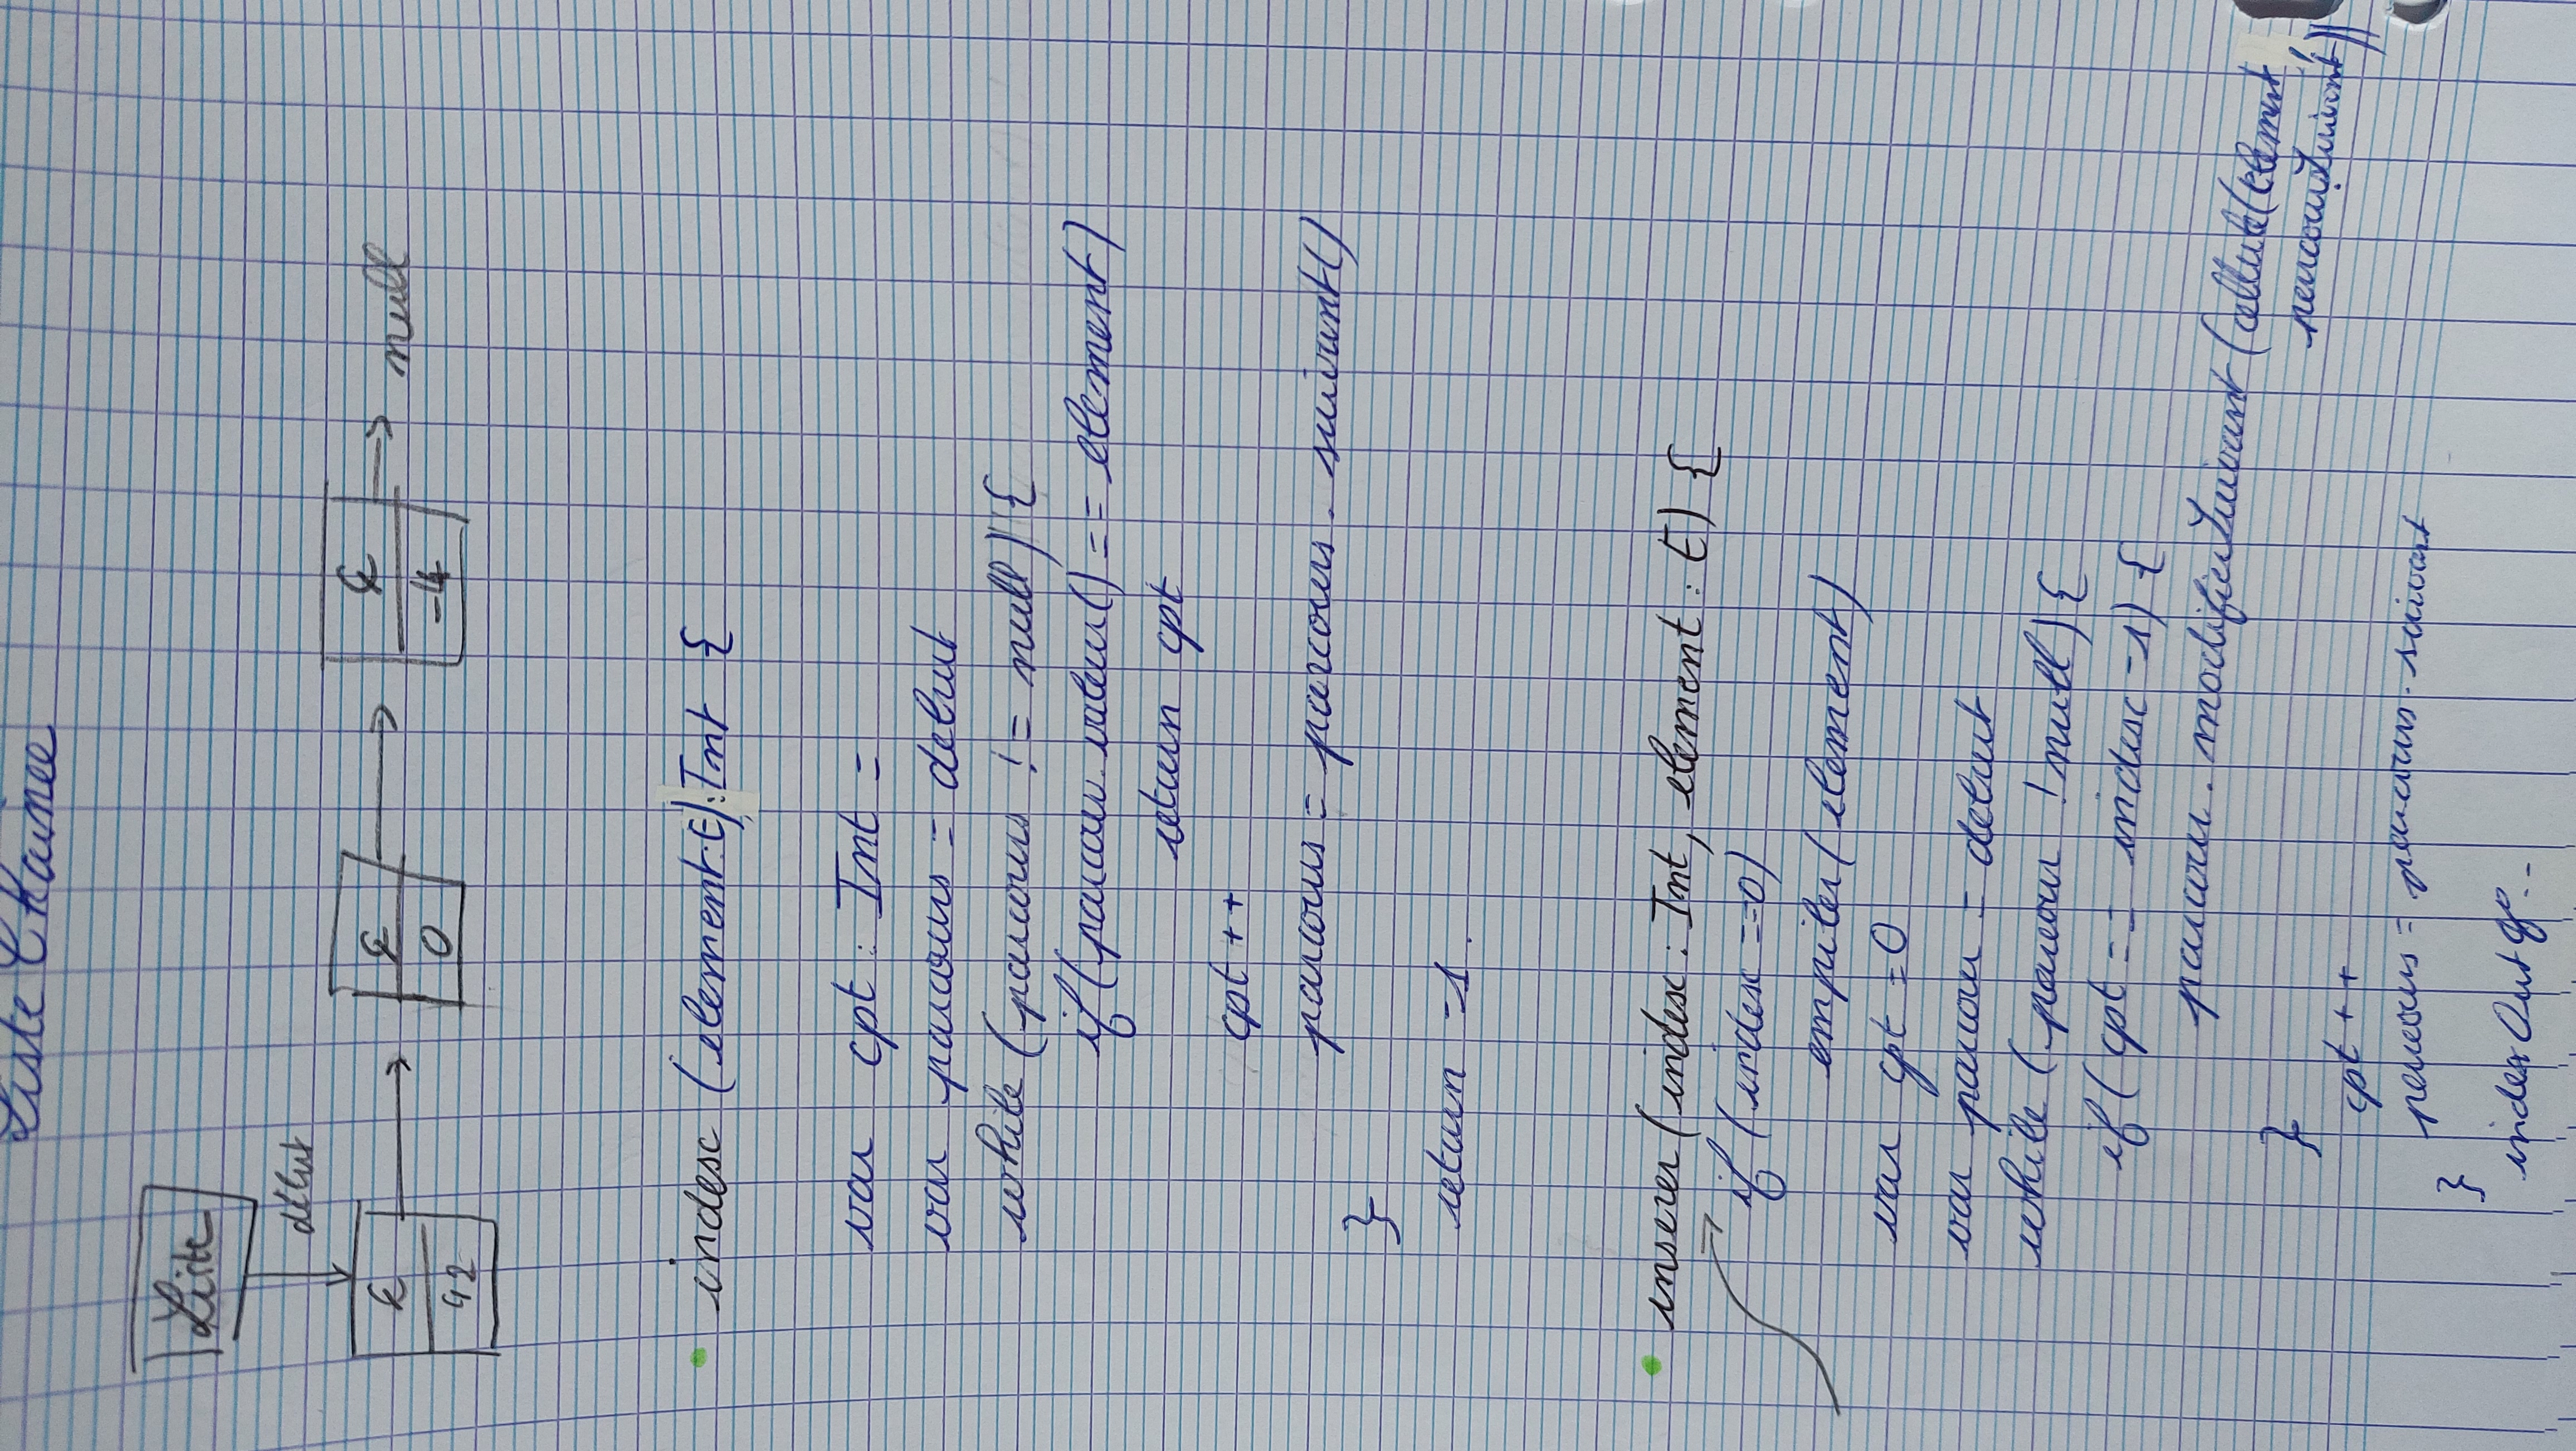 Liste Chainee
Liste
début
E
E
E
null
42
0
-4
• index (element:E):Int {
var cpt : Int =
var parcours = debut
while (parcours != null) {
if (parcour.valeur() == element)
return cpt
cpt ++
parcours = parcours . suivant()
}
return -1.
• inserer (index : Int, element : E) {
if (index ==0)
empiler (element)
var cpt =0
var parcour = debut
while ( parcour ! null) {
if ( cpt == index -1) {
parcour . modifierSuivant (cellule(element,
parcour.Suivant))
}
cpt ++
parcours = parcours . suivant
}
index Out of..